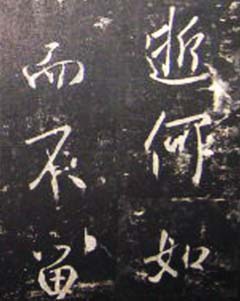 逝何如
而不留